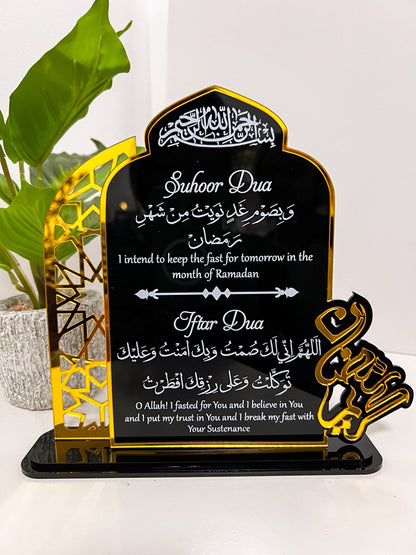 بسم الله الرحمن الرحيم
Suhoor Dua
وَبِصَوْمِ غَدٍ نَوَيْتُ مِنْ شَهْرِ
رَمَضَانَ
I intend to keep the fast for tomorrow in the
month of Ramadan
Iftar Dua
اَللّٰهُمَّ اِنِّي لَكَ صُمْتُ وَبِكَ اٰمَنْتُ وَعَلَيْكَ
تَوَكَّلْتُ وَعَلَى رِزْقِكَ اَفْطَرْتُ
O Allah! I fasted for You and I believe in You
and I put my trust in You and I break my fast with
Your Sustenance